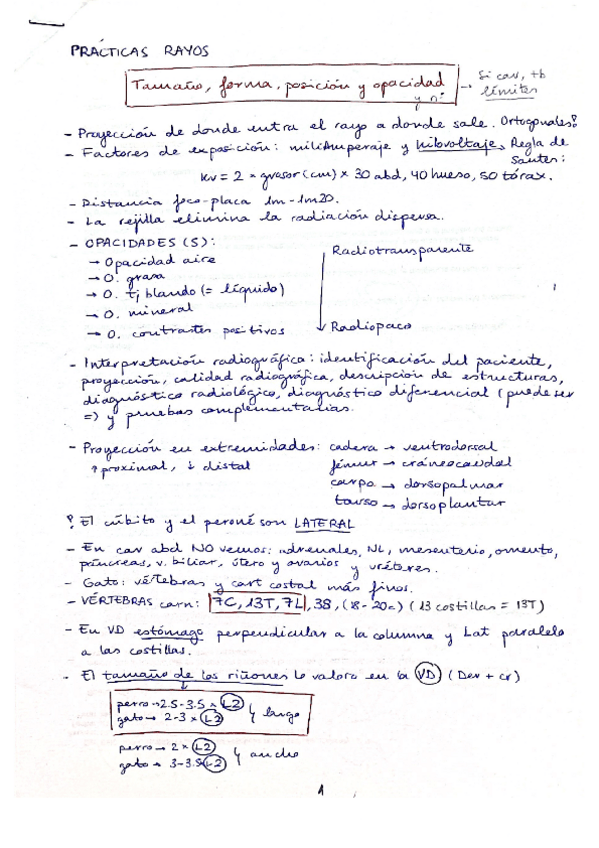 PRÁCTICAS RAYOS
Tamaño, forma, posición y opacidad
y nº
→ Si cav, tb
límites
- Proyección de donde entra el rayo a donde sale. Ortogonales!
- Factores de exposición: miliAmperaje y kilovoltaje. Regla de
Santes:
kv = 2 × grosor (cm) × 30 abd, 40 hueso, 50 tórax.
- Distancia foco-placa 1m - 1m20.
- La rejilla elimina la radiación dispersa.
- OPACIDADES (5):
→ Opacidad aire
→ O. grasa
→ O. tj blando (= líquido)
→ O. mineral
→ O. contrastes positivos
Radiotransparente
Radiopaco
- Interpretación radiográfica: identificación del paciente,
proyección, calidad radiográfica, descripción de estructuras,
diagnóstico radiológico, diagnóstico diferencial (puede ser
=) y pruebas complementarias.
- Proyección en extremidades: cadera → ventrodorsal
↑ proximal, ↓ distal
fémur → cráneocaudal
carpo → dorsopalmar
tarso → dorsoplantar
! El cúbito y el peroné son LATERAL
- En cav abd NO vemos: adrenales, NL, mesenterio, omento,
páncreas, v. biliar, útero y ovarios y uréteres.
- Gato: vértebras y cart costal más finos.
- VÉRTEBRAS carn: 7C, 13T, 7L, 3S, (8-20c) (13 costillas = 13T)
- En VD estómago perpendicular a la columna y Lat paralelo
a las costillas.
- El tamaño de los riñones lo valora en la VD (Der + cr)
perro → 2.5-3.5 × L2
gato → 2-3 × L2
} largo
perro → 2 × L2
gato → 3-3.5 L2
} ancho
1